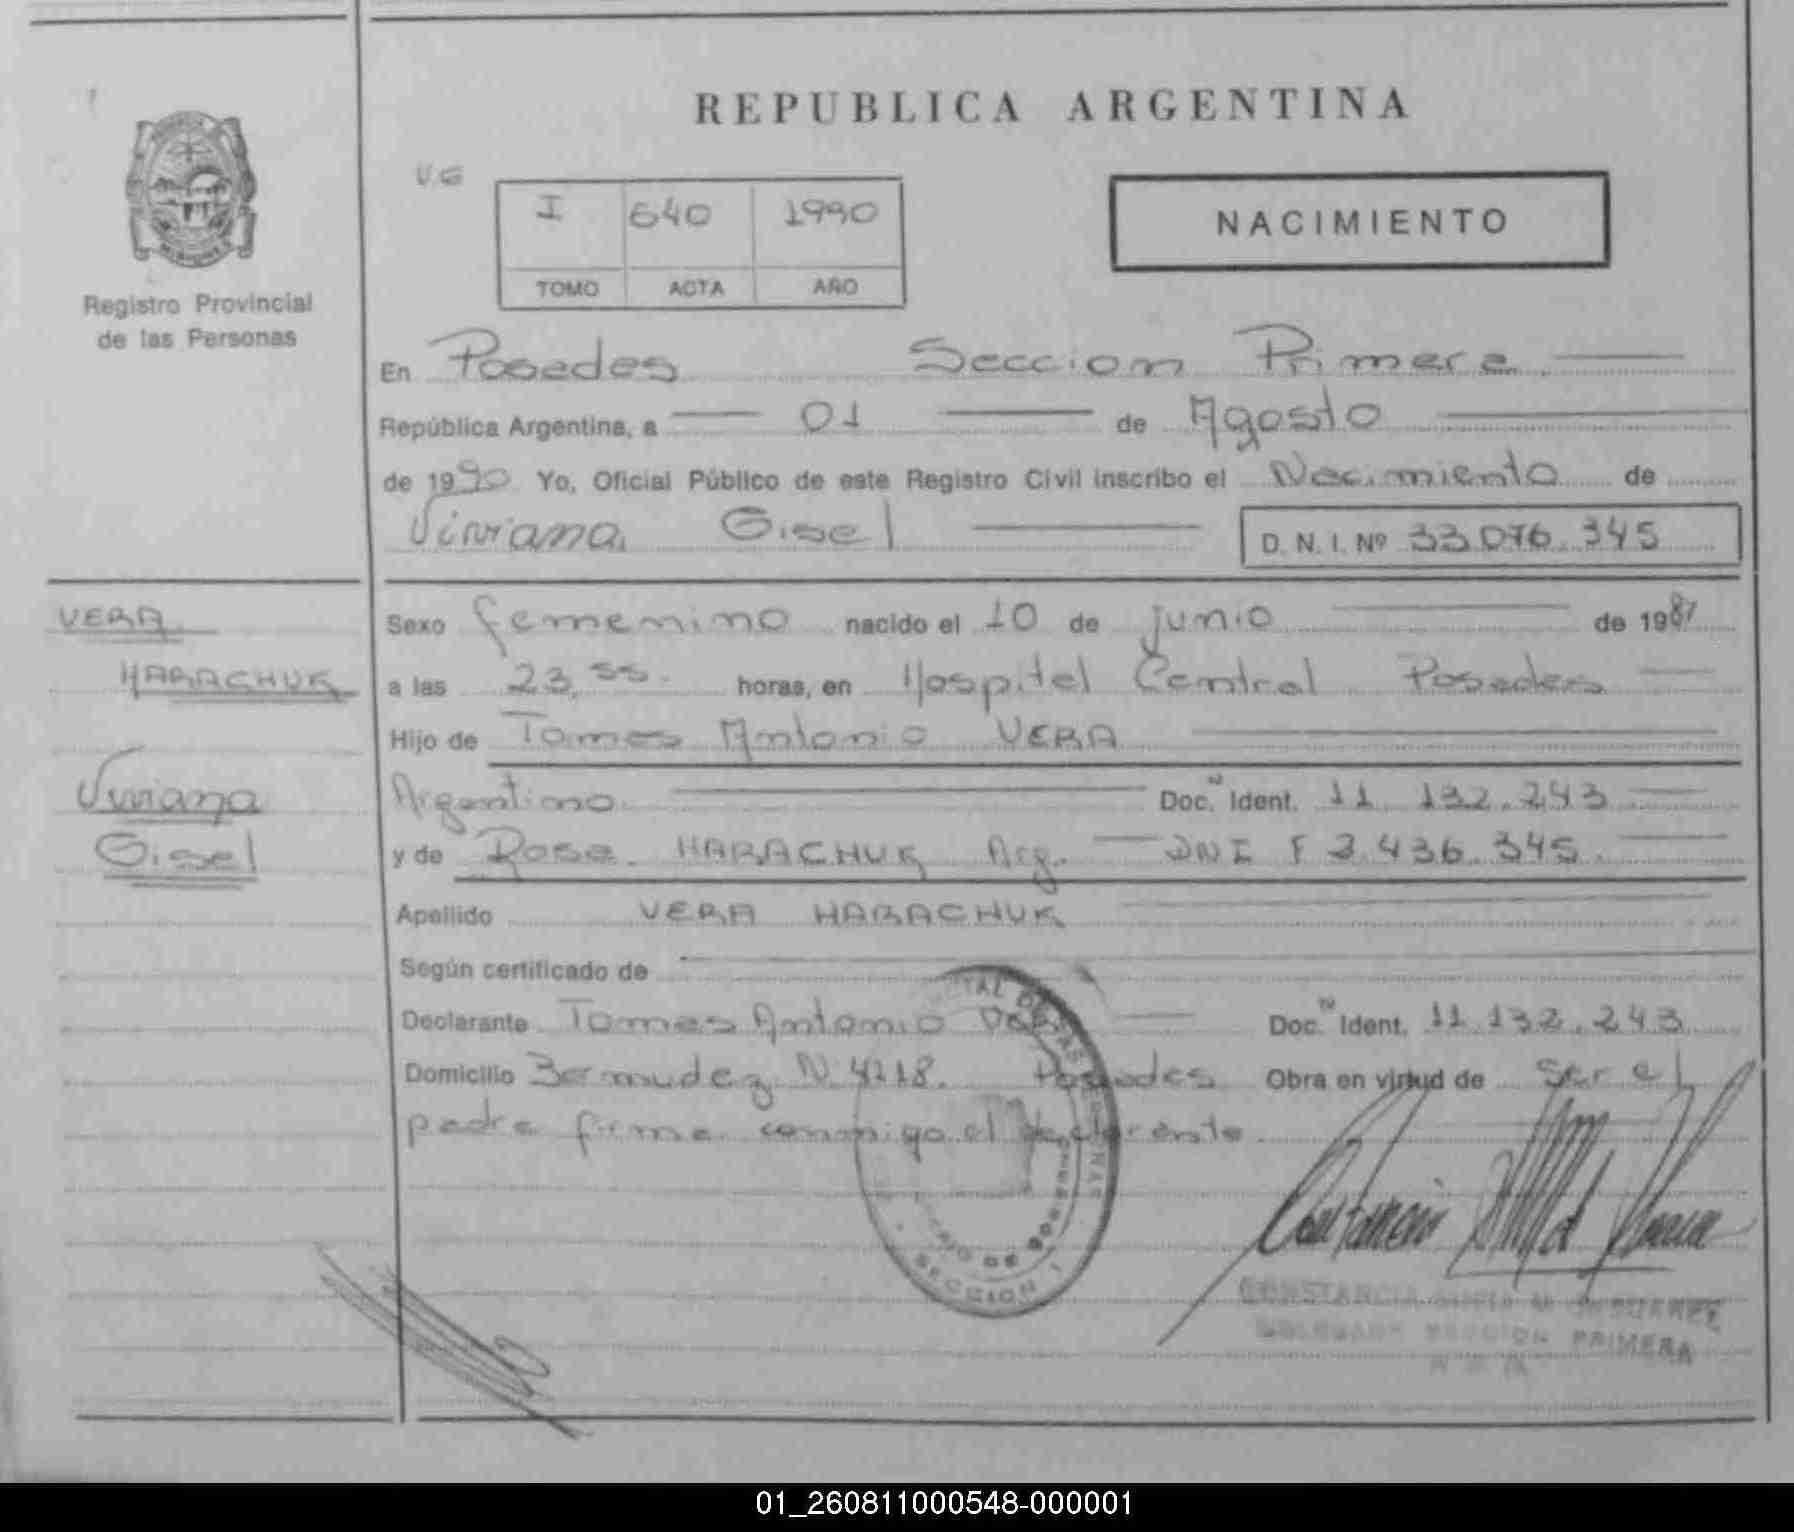 REPUBLICA ARGENTINA
V.G
I 640 1990
TOMO ACTA AÑO
NACIMIENTO
Registro Provincial
de las Personas
En Posadas Seccion Primera
República Argentina, a 01 de Agosto
de 1990 Yo, Oficial Público de este Registro Civil inscribo el Nacimiento de
Viviana Gisel D. N. I. Nº 33.076.345
VERA
HARACHUK
Viviana
Gisel
Sexo femenino nacido el 10 de junio de 1987
a las 23,55. horas, en Hospital Central Posadas
Hijo de Tomas Antonio VERA
Argentino Doc. Ident. 11.132.243
y de Rosa HARACHUK Arg. DNI F 3.436.345.
Apellido VERA HARACHUK
Según certificado de
Declarante Tomas Antonio Doc. Ident. 11.132.243
Domicilio Bermudez N. 4218. Posadas Obra en virtud de ser el
padre firma conmigo el declarante
DE LAS PERSONAS
DE GOBIERNO
SECCION 1
CONSTANCIA
SECCION PRIMERA
01_260811000548-000001